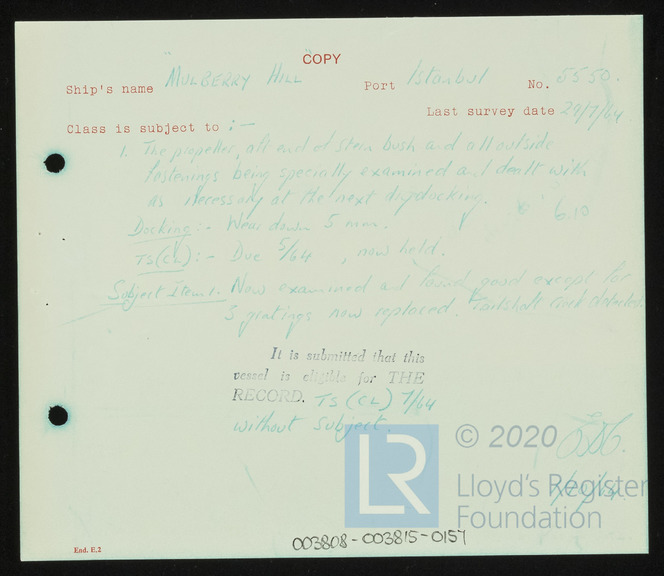 COPY
Ship's name "MULBERRY HILL" Port Istanbul No. 5550.
Last survey date 29/7/64
Class is subject to :-
1. The propeller, aft end of stern bush and all outside
fastenings being specially examined and dealt with
as necessary at the next drydocking.
6 6.10
Docking :- Wear down 5 mm.
TS(CL) :- Due 5/64, now held.
Subject Item 1. Now examined and found good except for
5 gratings now replaced. Tailshaft
It is submitted that this
vessel is eligible for THE
RECORD. TS(CL) 7/64
without subject.
© 2020
LR
Lloyd's Register
Foundation
003808-003815-0157
End. E.2